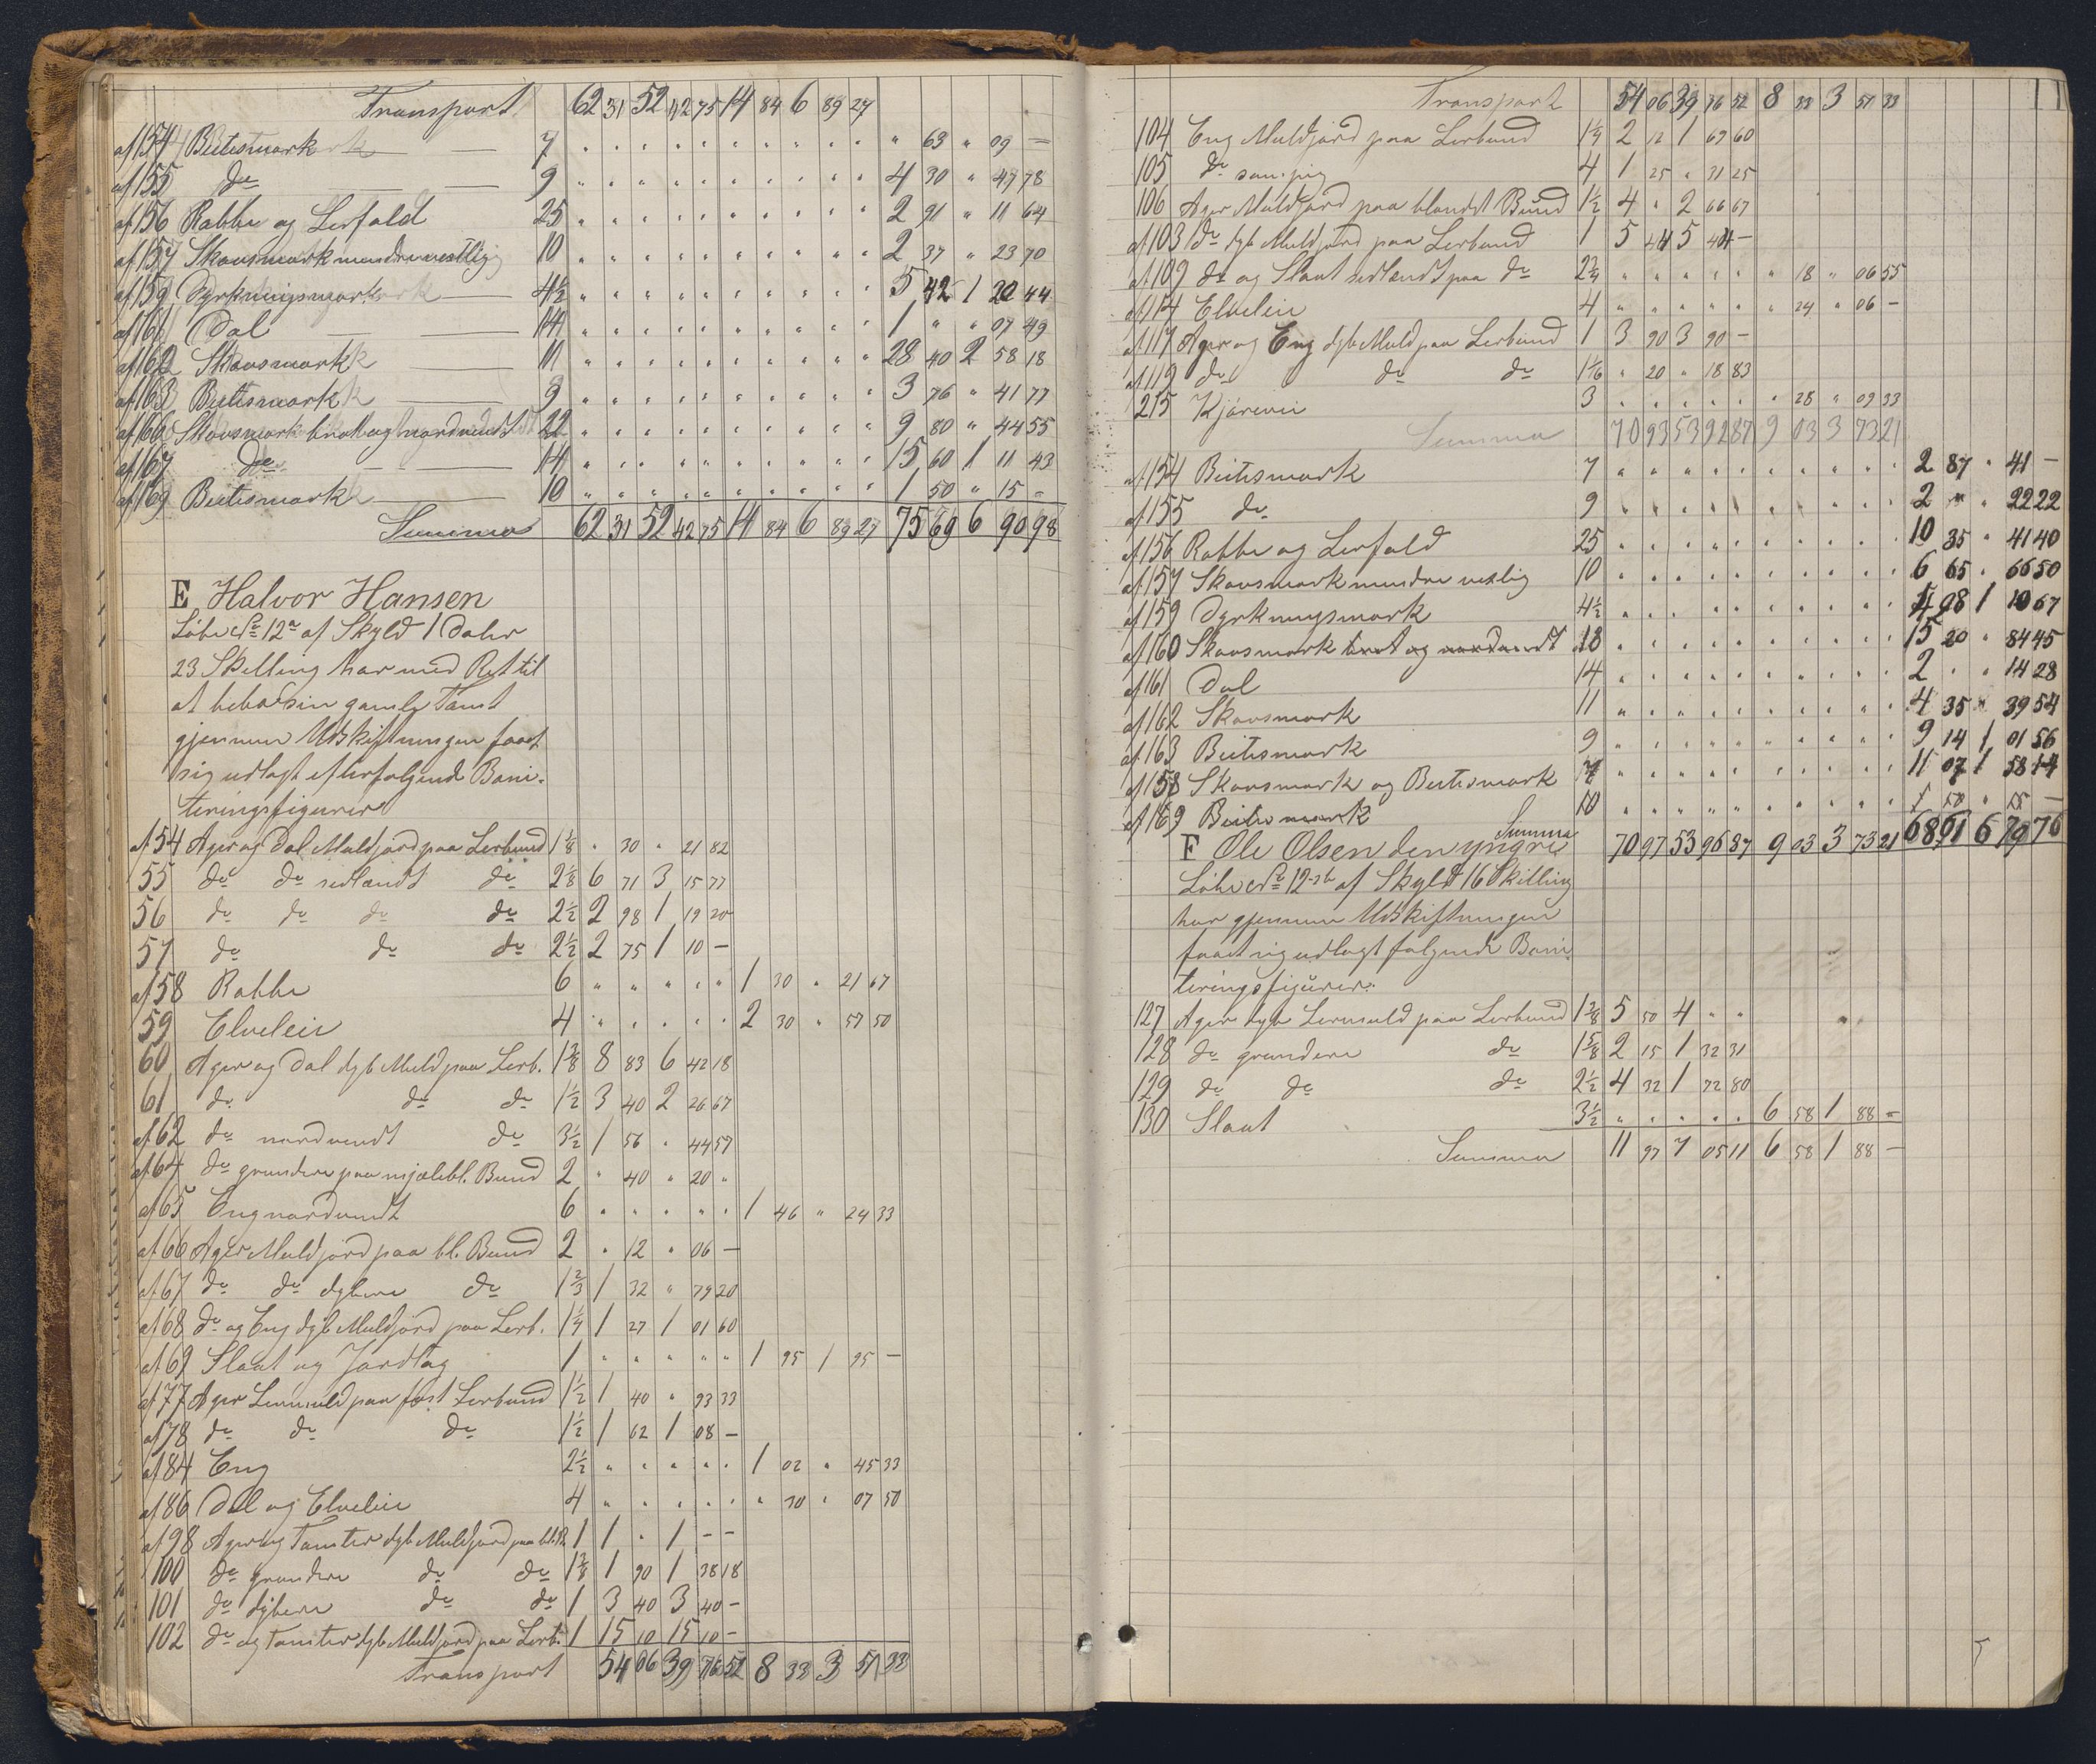 Transport 62 31 52 42 75 14 84 6 89 27
af 154 Beitesmark 7 " 63 " 09 —
af 155 do 9 4 30 " 47 78
af 156 Rabbe og Lerfald 25 2 91 " 11 64
af 157 Skovsmark mindre vestlig 10 2 37 " 23 70
af 159 Dyrkningsmark 4½ 5 42 1 20 44
af 161 Dal 14 1 " " 07 49
af 162 Skovsmark 11 28 40 2 58 18
af 163 Beitesmark 9 3 76 " 41 77
af 166 Skovsmark brat og nordvendt 22 9 80 " 44 55
af 167 do 14 15 60 1 11 43
af 169 Beitesmark 10 1 50 " 15 =
Summa 62 31 52 42 75 14 84 6 89 27 75 69 6 90 98
E Halvor Hansen
Løbe No 12a af Skyld 1 Daler
23 Skilling har med Ret til
at beboe sin gamle Tomt
gjennem Udskiftningen faaet
sig udlagt efterfølgende Boni-
teringsfigurer
af 54 Ager og Dal Muldjord paa Lerbund 1⅜ " 30 " 21 82
55 do do sidlændt do 2⅛ 6 71 3 15 77
56 do do do do 2½ 2 98 1 19 20
57 do do do 2½ 2 75 1 10 —
af 58 Rabbe 6 " " " " " 1 30 " 21 67
59 Elveleie 4 " " " " " 2 30 " 57 50
60 Ager og Dal dyb Muld paa Lerb. 1⅜ 8 83 6 42 18
61 do do do 1½ 3 40 2 26 67
af 62 do nordvendt do 3½ 1 56 " 44 57
af 64 do grundere paa mjælebl. Bund 2 " 40 " 20 "
af 65 Eng nordvendt 6 " " " " " 1 46 " 24 33
af 66 Ager Muldjord paa bl. Bund 2 " 12 " 06 —
af 67 do do dybere do 1⅔ 1 32 " 79 20
af 68 do og Eng dyb Muldjord paa Lerb. 1¼ 1 27 1 01 60
af 69 Slaat og Jordtag 1 " " " " " 1 95 1 95 —
af 77 Ager Lermuld paa fast Lerbund 1½ 1 40 " 93 33
af 78 do do do 1½ 1 62 1 08 —
af 84 Eng 2½ " " " " " 1 02 " 45 33
af 86 Dal og Elveleie 4 " " " " " " 30 " 07 50
af 98 Ager og Tomter dyb Muldjord paa bl. B. 1 1 " 1 — —
100 do grundere do do 1⅜ 1 90 1 38 18
101 do dybere do do 1 3 40 3 40 —
102 do og Tomter dyb Muldjord paa Lerb. 1 15 10 15 10 —
Transport 54 06 39 76 52 8 33 3 51 33
Transport 54 06 39 76 52 8 33 3 51 33
104 Eng Muldjord paa Lerbund 1¼ 2 12 1 69 60
105 do 4 1 25 " 31 25
106 Ager Muldjord paa blandet Bund 1½ 4 " 2 66 67
af 103 do dyb Muldjord paa Lerbund 1 5 44 5 44 —
af 109 do og Slaat sidlændt paa do 2¾ " " " " " " 18 " 06 55
af 114 Elveleie 4 " " " " " " 24 " 06 —
af 117 Ager og Eng dyb Muld paa Lerbund 1 3 90 3 90 —
af 119 do do do 1 1/16 " 20 " 18 83
215 Kjørevei 3 " " " " " " 28 " 09 33
Summa 70 93 53 92 87 9 03 3 73 21
af 154 Beitesmark 7 2 87 " 41 —
af 155 do 9 2 " " 22 22
af 156 Rabbe og Lerfald 25 10 35 " 41 40
af 157 Skovsmark mindre vestlig 10 6 65 " 66 50
af 159 Dyrkningsmark 4½ 4 98 1 10 67
af 160 Skovsmark brat og nordvendt 18 15 20 " 84 45
af 161 Dal 14 2 " " 14 28
af 162 Skovsmark 11 4 35 " 39 54
af 163 Beitesmark 9 9 14 1 01 56
af 158 Skovsmark og Beitesmark 7 11 07 1 58 14
af 169 Beitesmark 10 1 50 " 15 —
Summa 70 97 53 96 87 9 03 3 73 21 68 91 6 79 76
F Ole Olsen den yngre
Løbe No 12 b af Skyld 16 Skilling
har gjennem Udskiftningen
faaet sig udlagt følgende Boni-
teringsfigurer:
127 Ager dyb Lermuld paa Lerbund 1⅜ 5 50 4 " "
128 do grundere do 1⅝ 2 15 1 32 31
129 do do do 2½ 4 32 1 72 80
130 Slaat 3½ " " " " " 6 58 1 88 =
Summa 11 97 7 05 11 6 58 1 88 —